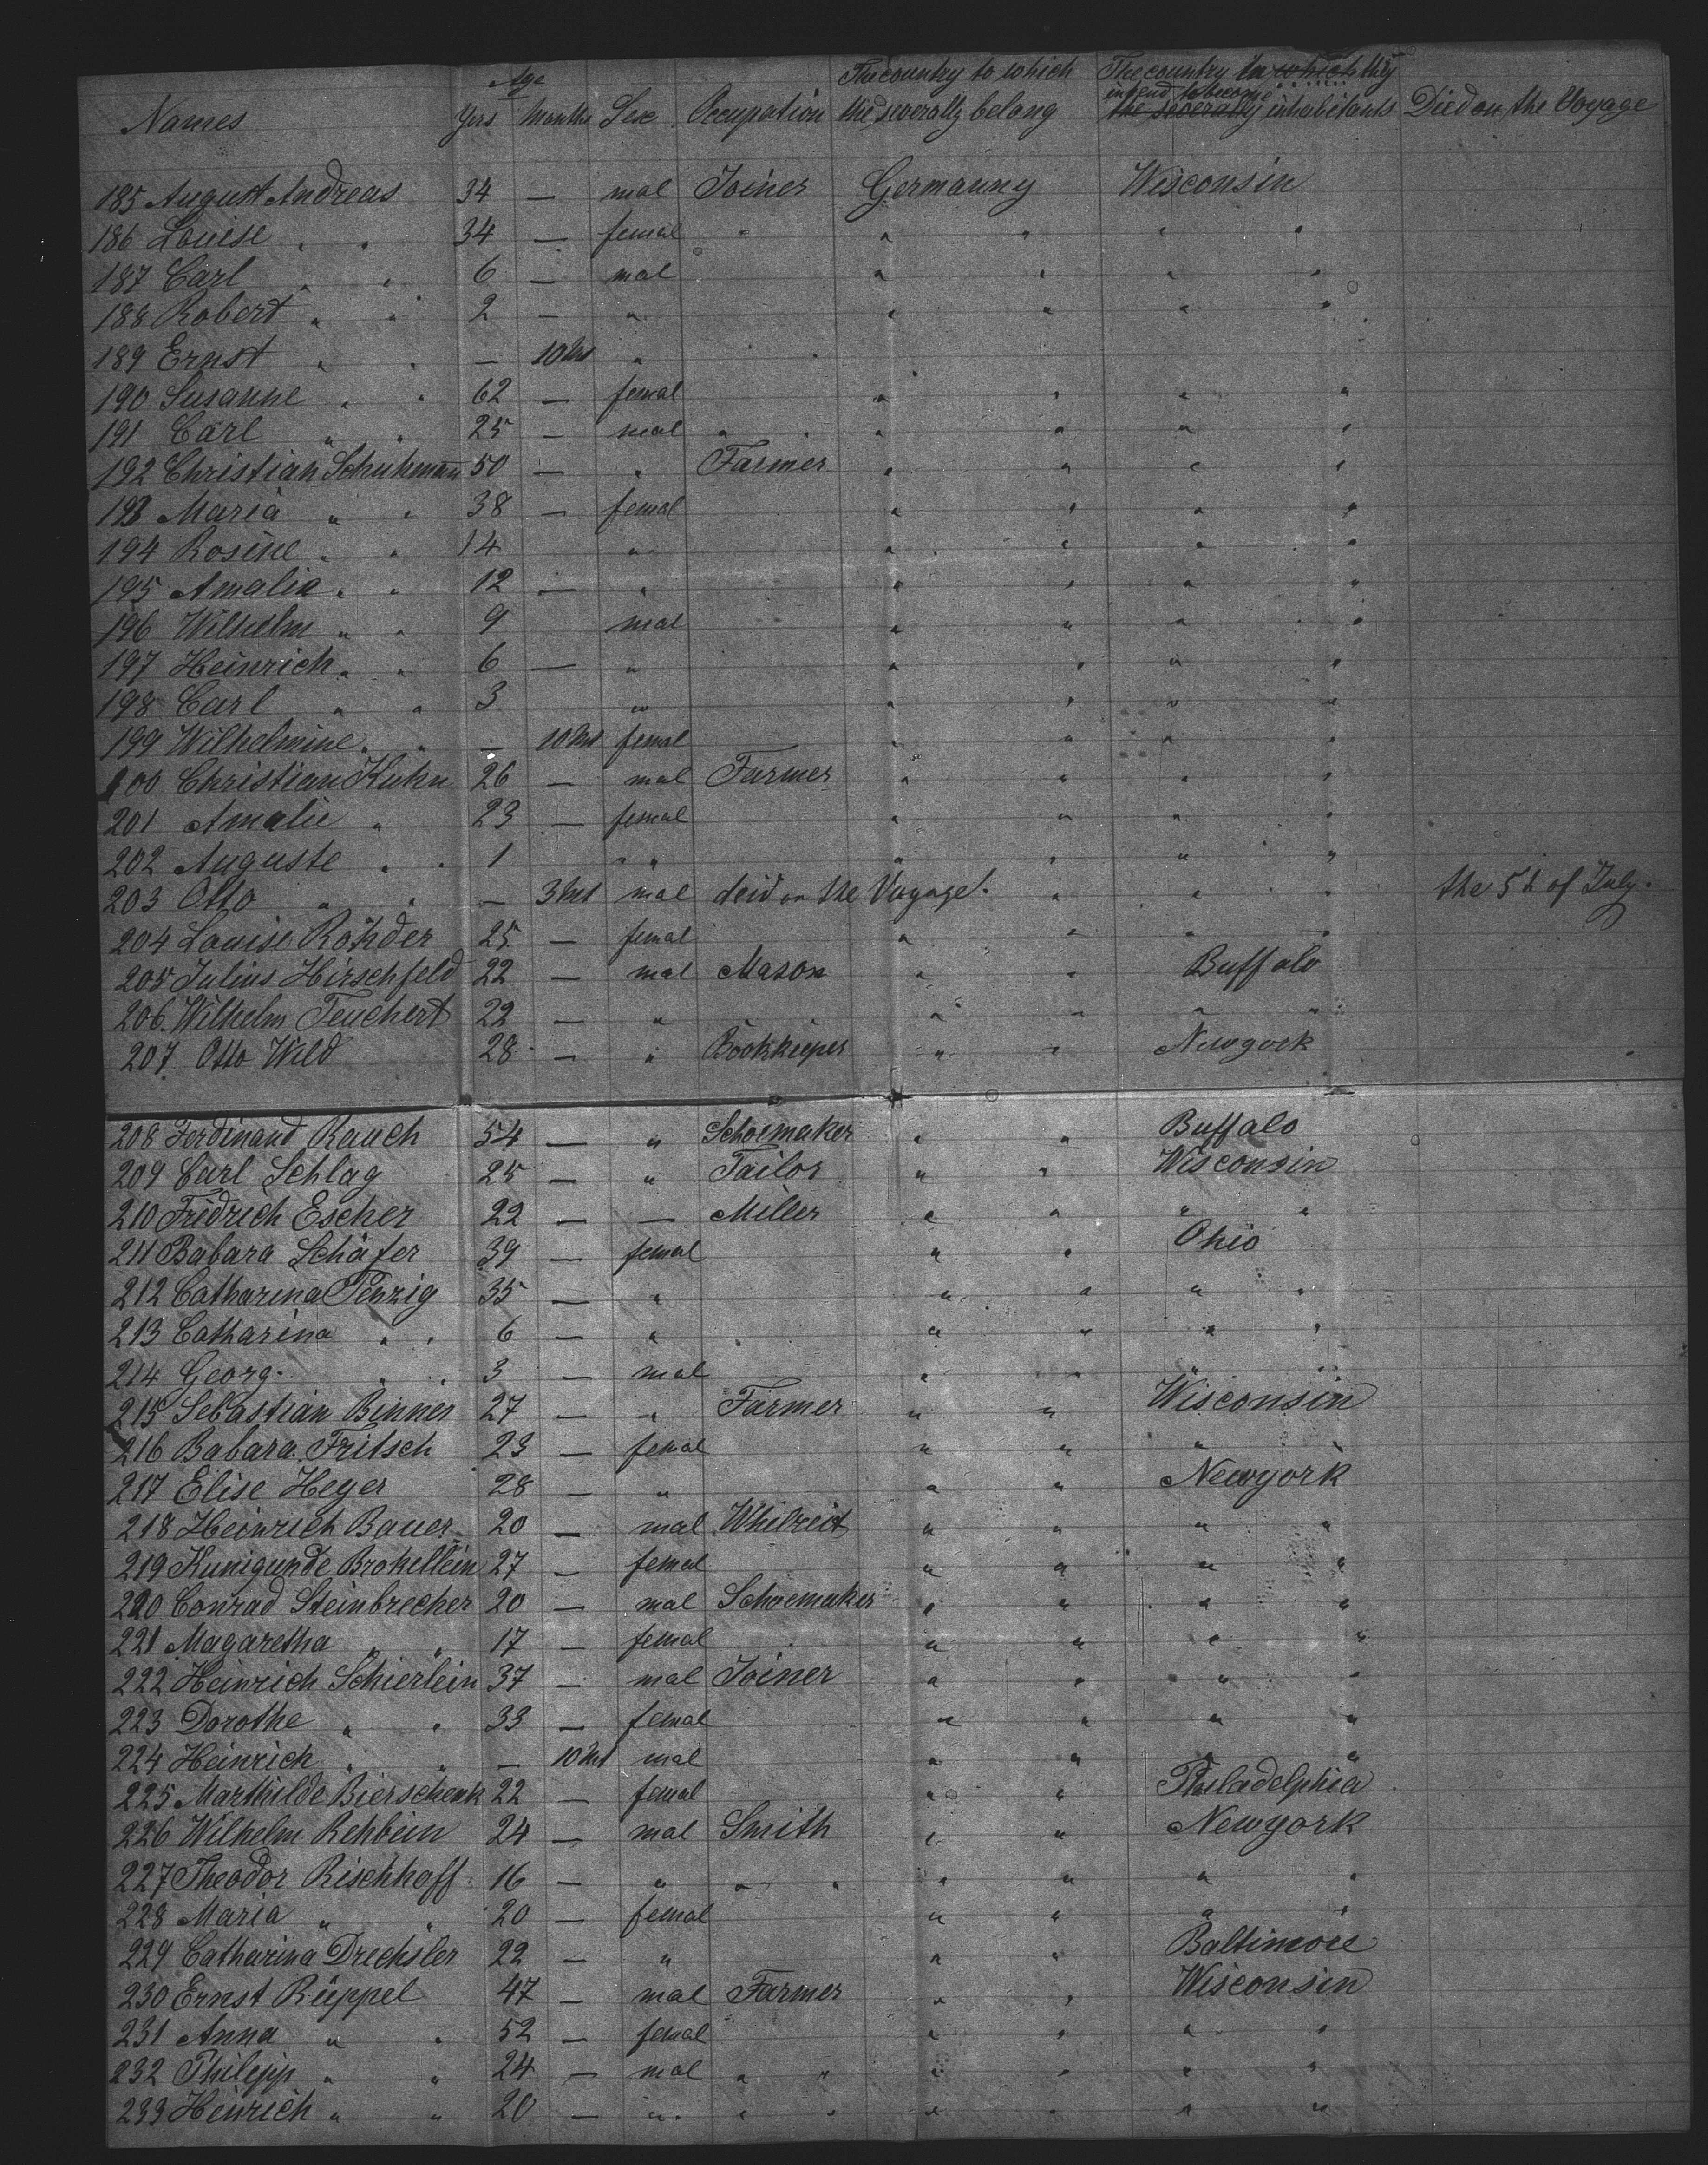 Age
The country to which The country to which they
intend to become
Names Yrs Months Sex Occupation they severally belong the severally inhabitants Died on the Voyage
185 August Andreas 34 — mal Joiner Germanny Wisconsin
186 Louise " " 34 — femal " " " " "
187 Carl " " 6 — mal " " " "
188 Robert " " 2 — " " " " "
189 Ernst " " — 10 Mt "
190 Susanne " " 62 — femal " " " "
191 Carl " " 25 — mal " " " " " "
192 Christian Schuhmann 50 — " Farmer " " " "
193 Maria " " 38 — femal " " " "
194 Rosine " " 14 " " " " "
195 Amalia " " 12 — " " " " "
196 Wilhelm " " 9 mal " " " "
197 Heinrich " " 6 — " " " " "
198 Carl " " 3 " " " " "
199 Wilhelmine " " — 10 Mt femal " " " "
200 Christian Kuhn 26 — mal Farmer " " " "
201 Amalie " 23 — femal " " " "
202 Auguste " " 1 " " " " " "
203 Otto " " — 3 Mt mal deid on the Voyage. " " " the 5t of July.
204 Louise Röhder 25 — femal " " " "
205 Julius Hirschfeld 22 — mal Mason " " Buffalo
206 Wilhelm Teuchert 22 — " " " " "
207 Otto Wild 28 — " Bookkieper " " Newyork
208 Ferdinand Rauch 54 — " Schoemaker " " Buffalo
209 Carl Schlag 25 — " Tailor " " Wisconsin
210 Fridrich Escher 22 — — Miller " " " "
211 Babara Schäfer 39 — femal " " Ohio
212 Catharina Penzig 35 — " " " " "
213 Catharina " " 6 — " " " " "
214 Georg " " 3 — mal " " " "
215 Sebastian Binner 27 — " Farmer " " Wisconsin
216 Babara Fritsch 23 — femal " " " "
217 Elise Heyer 28 — " " " Newyork
218 Heinrich Bauer 20 — mal " " " "
219 Kunigunde Brokellein 27 — femal " " " "
220 Conrad Steinbrecher 20 — mal Schoemaker " " " "
221 Magaretha " " 17 — femal " " " "
222 Heinrich Schierlein 37 — mal Joiner " " " "
223 Dorothe " " 33 — femal " " " "
224 Heinrich " " — 10 Mt mal " " " "
225 Marthilde Bierschenk 22 — femal " " Philadelphia
226 Wilhelm Rehbein 24 — mal Smith " " Newyork
227 Theodor Rischhoff 16 — " " " " " " "
228 Maria " " 20 — femal " " " "
229 Catharina Drechsler 22 — " " " Baltimore
230 Ernst Rüppel 47 — mal Farmer " " Wisconsin
231 Anna " " 52 — femal " " " "
232 Philipp " " 24 — mal " " " " " "
233 Heinrich " " 20 — " " " " " " "